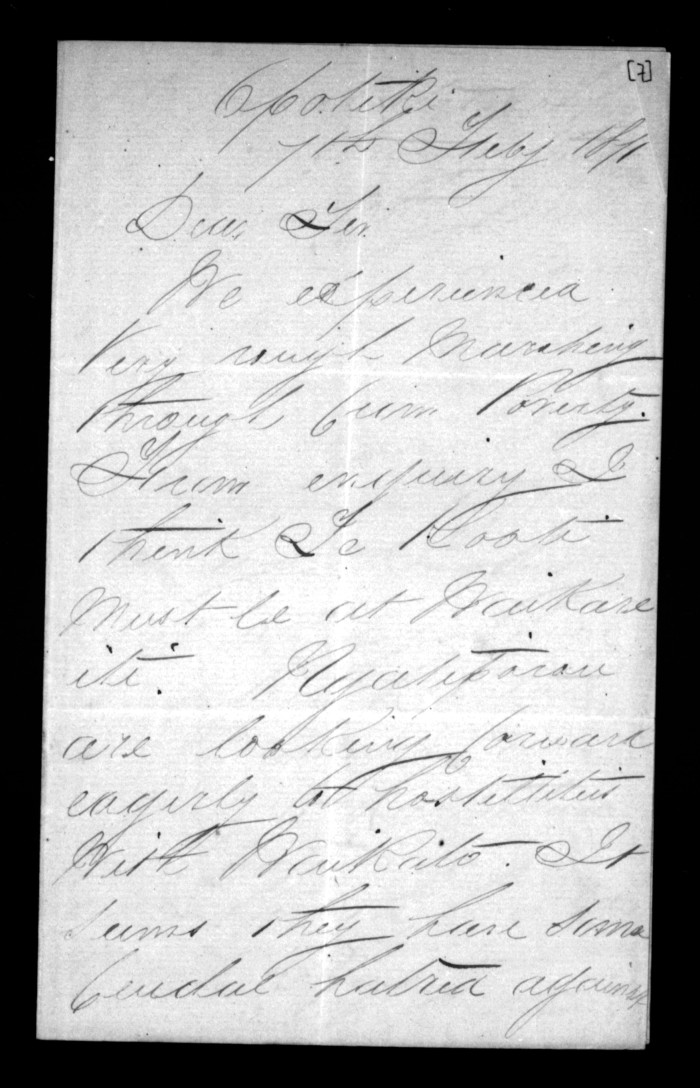 [7]
Opotiki
7th Feby 1871
Dear Sir
We experienced
Very rough Marching
through from Poverty.
From enquiry I
think Te Kooti
Must be at Waikare
iti. Ngatiporou
are looking forward
eagerly to hostilities
With Waikato. It
seems they have some
feudal hatred against